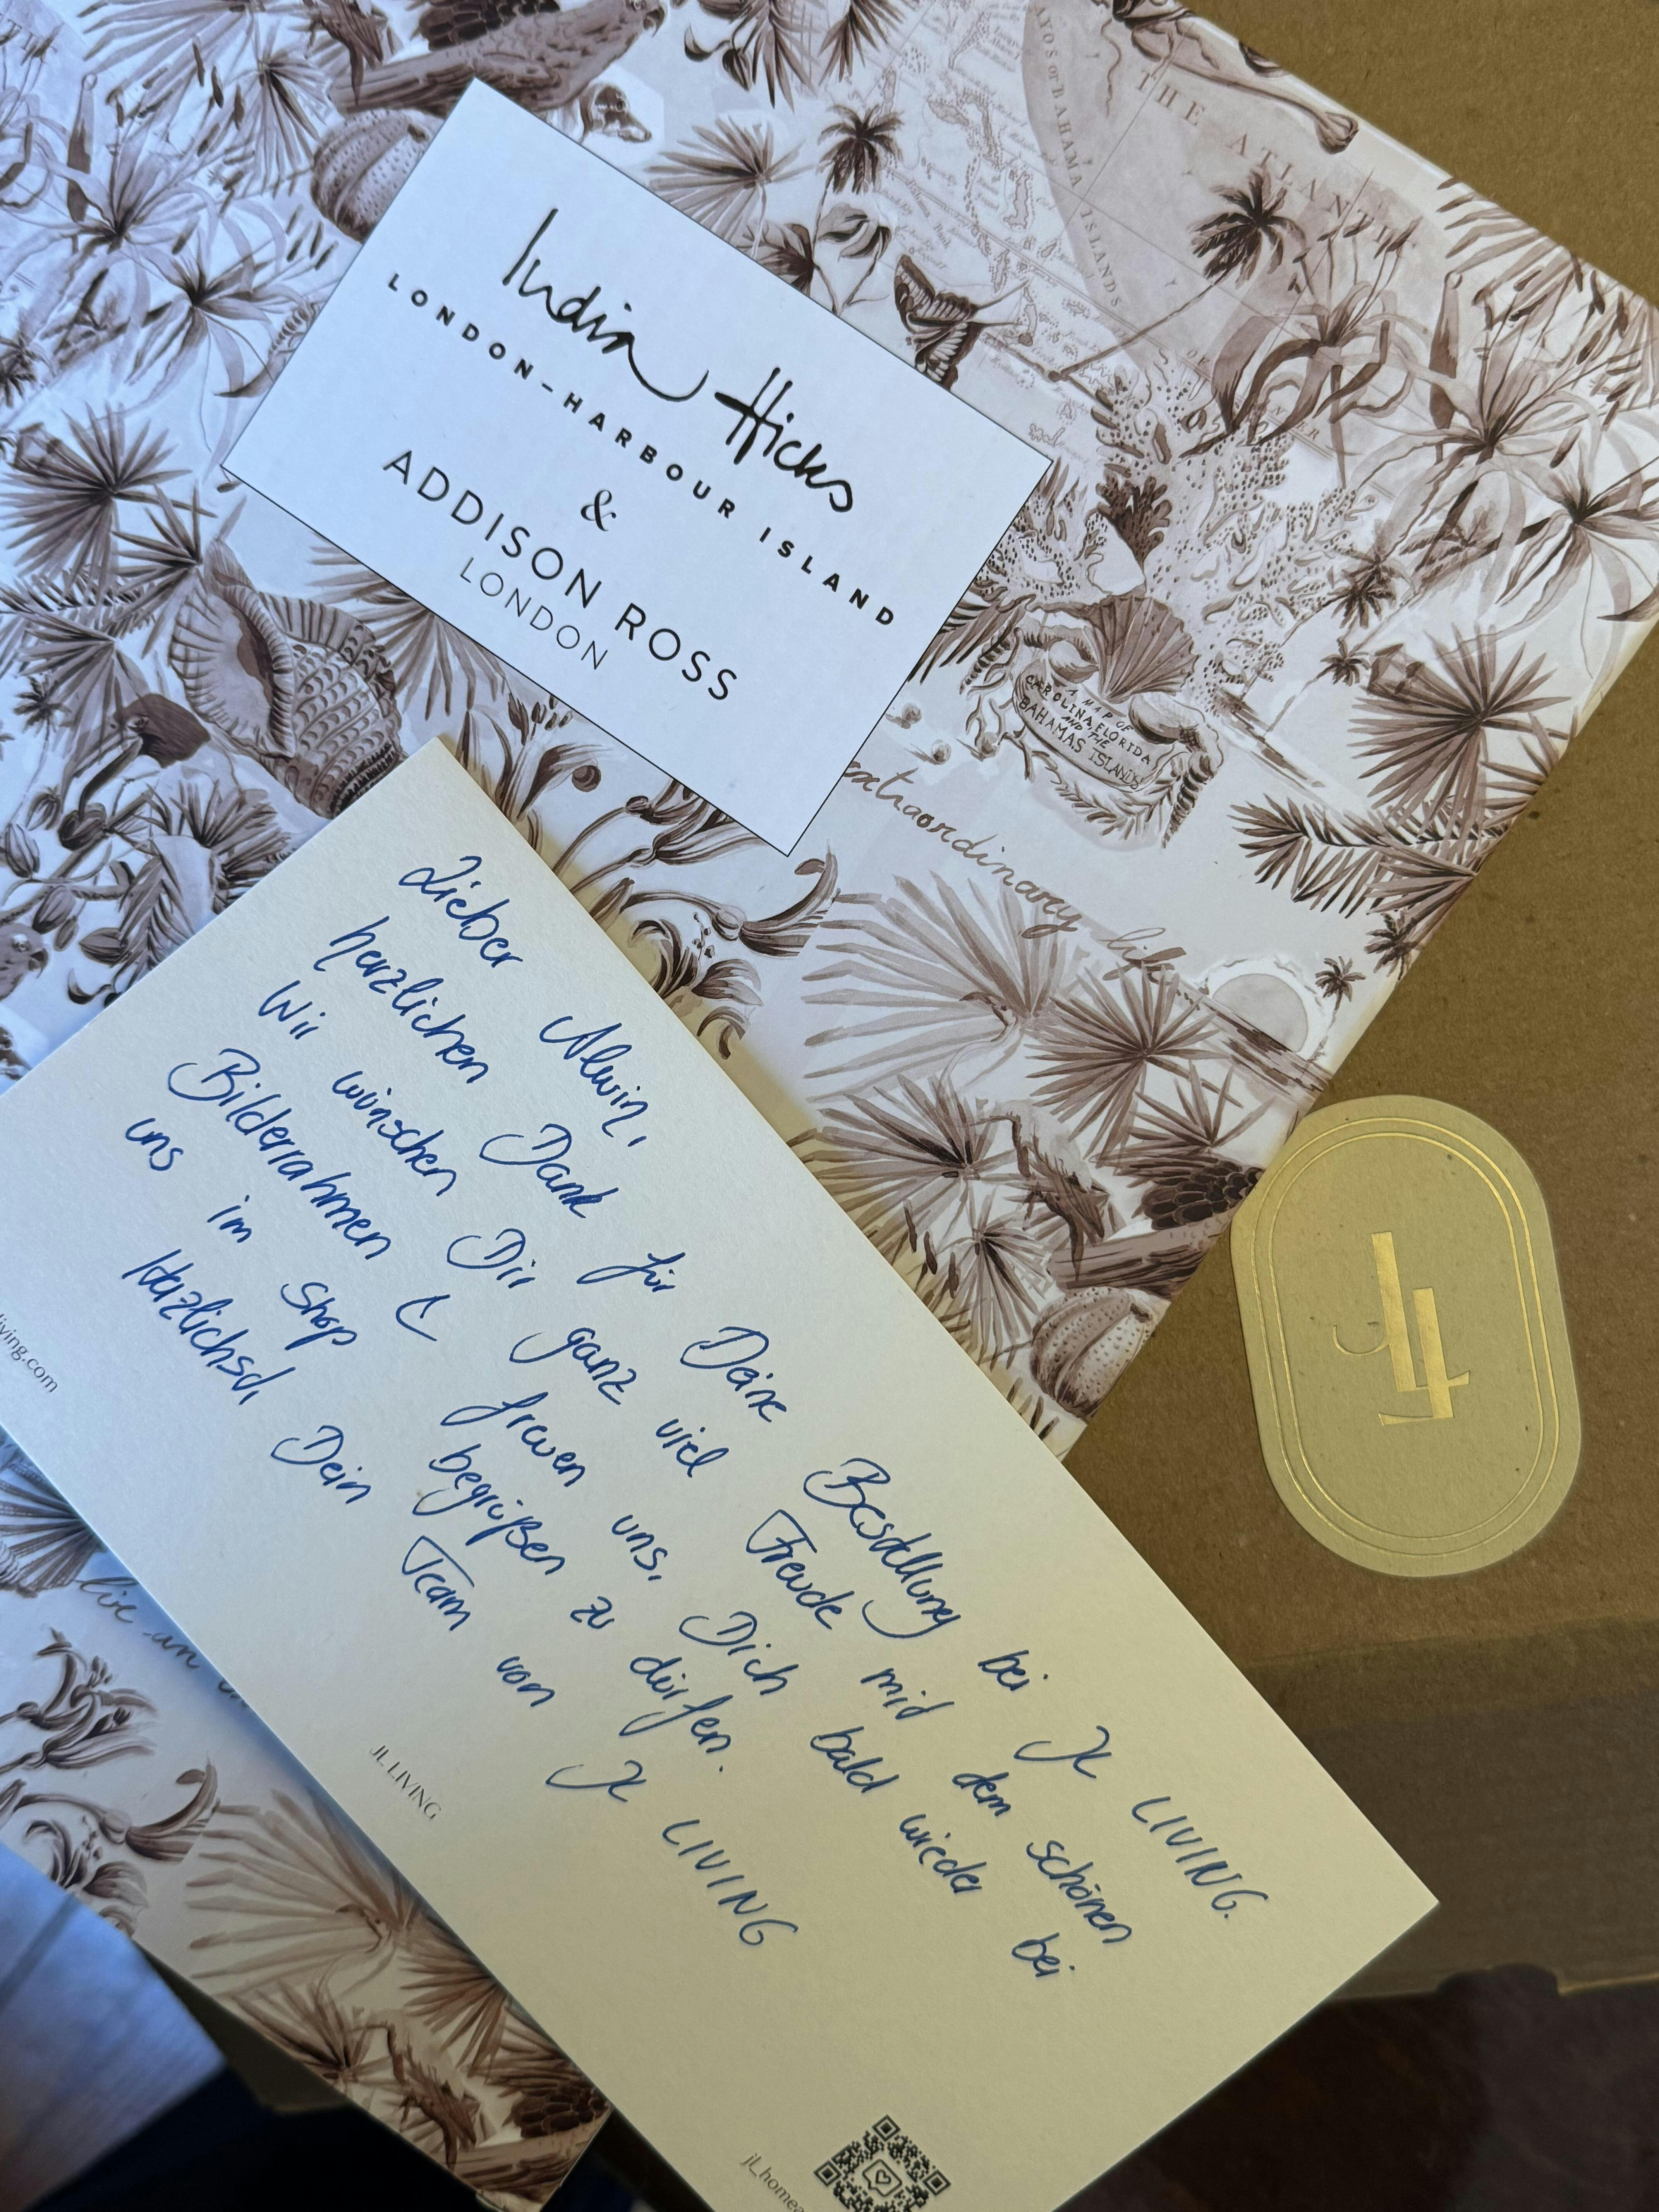 THE ATLANTIC
ISLANDS
India Hicks
LONDON-HARBOUR ISLAND
&
ADDISON ROSS
LONDON
A MAP OF
CAROLINA FLORIDA
AND THE
BAHAMAS ISLANDS
extraordinary life
Lieber Alwin,
herzlichen Dank für Deine Bestellung bei JL LIVING.
Wir wünschen Dir ganz viel Freude mit dem schönen
Bilderrahmen & freuen uns, Dich bald wieder bei
uns im Shop begrüßen zu dürfen.
Herzlichst,
Dein Team von JL LIVING
living.com
JL LIVING
jl_home
live an
JL